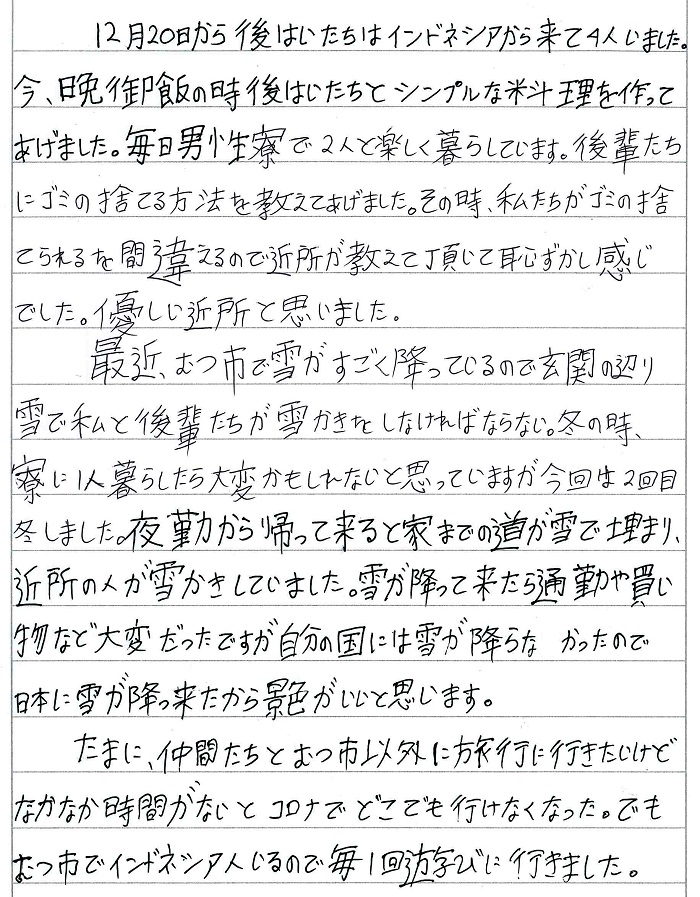 12月20日から後はいたちはインドネシアから来て4人いました。
今、晩御飯の時後はいたちとシンプルな料理を作って
あげました。毎日男性寮で2人と楽しく暮らしています。後輩たち
にゴミの捨てる方法を教えてあげました。その時、私たちがゴミの捨
てられるを間違えるので近所が教えて頂いて恥ずかし感じ
でした。優しい近所と思いました。
最近、むつ市で雪がすごく降っているので玄関の辺り
雪で私と後輩たちが雪かきをしなければならない。冬の時、
寮に1人暮らしたら大変かもしれないと思っていますが今回は2回目
冬しました。夜勤から帰って来ると家までの道が雪で埋まり、
近所の人が雪かきしていました。雪が降って来たら通勤や買い
物など大変だったですが自分の国には雪が降らな かったので
日本に雪が降っ来たから景色がいいと思います。
たまに、仲間たちとむつ市以外に旅行に行きたいけど
なかなか時間がないとコロナでどこでも行けなくなった。でも
むつ市でインドネシア人いるので毎1回遊学びに行きました。